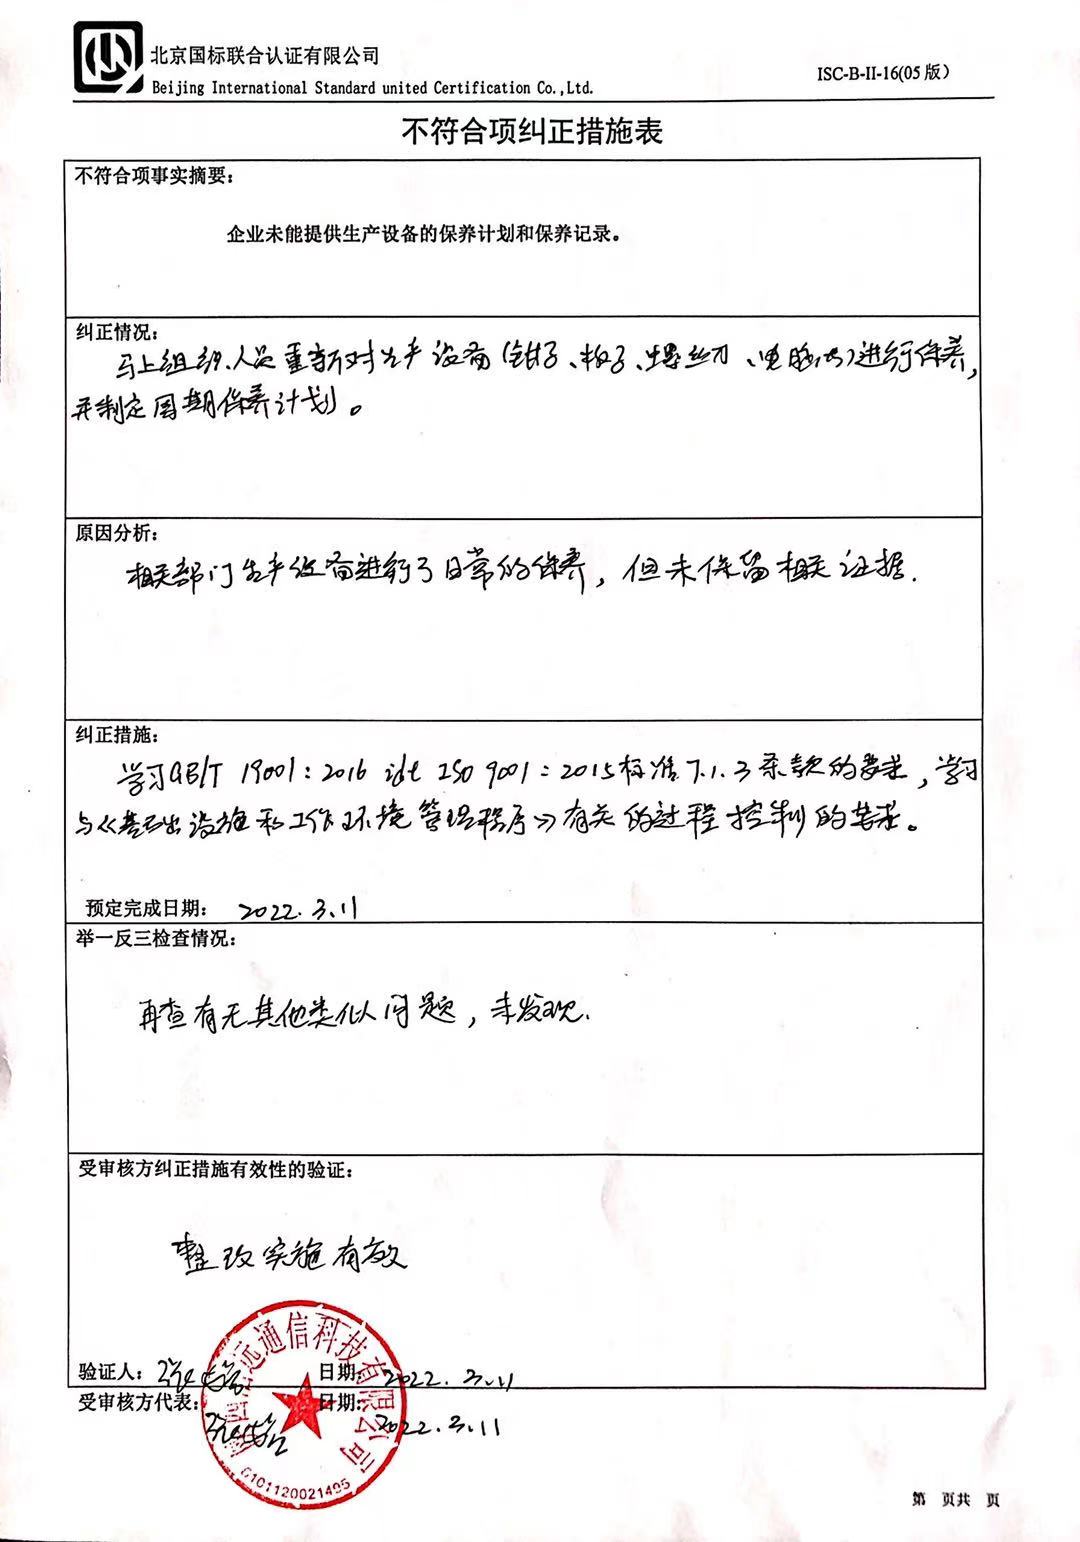 北京国标联合认证有限公司
Beijing International Standard united Certification Co.,Ltd.
ISC-B-II-16(05版)
不符合项纠正措施表
不符合项事实摘要:
企业未能提供生产设备的保养计划和保养记录。
纠正情况:
马上组织人员重新对生产设备(钳子、板子、螺丝刀、电脑等)进行保养,
并制定周期保养计划。
原因分析:
相关部门生产设备进行了日常的保养,但未保留相关证据.
纠正措施:
学习GB/T 19001:2016 idt ISO 9001:2015标准7.1.3条款的要求,学习
与《基础设施和工作环境管理程序》有关的过程控制的要求。
预定完成日期: 2022.3.11
举一反三检查情况:
再查有无其他类似问题,未发现.
受审核方纠正措施有效性的验证:
整改实施有效
远通信科技有限公司
验证人: 日期: 2022.3.11
受审核方代表: 日期: 2022.3.11
6101120021495
第 页共 页